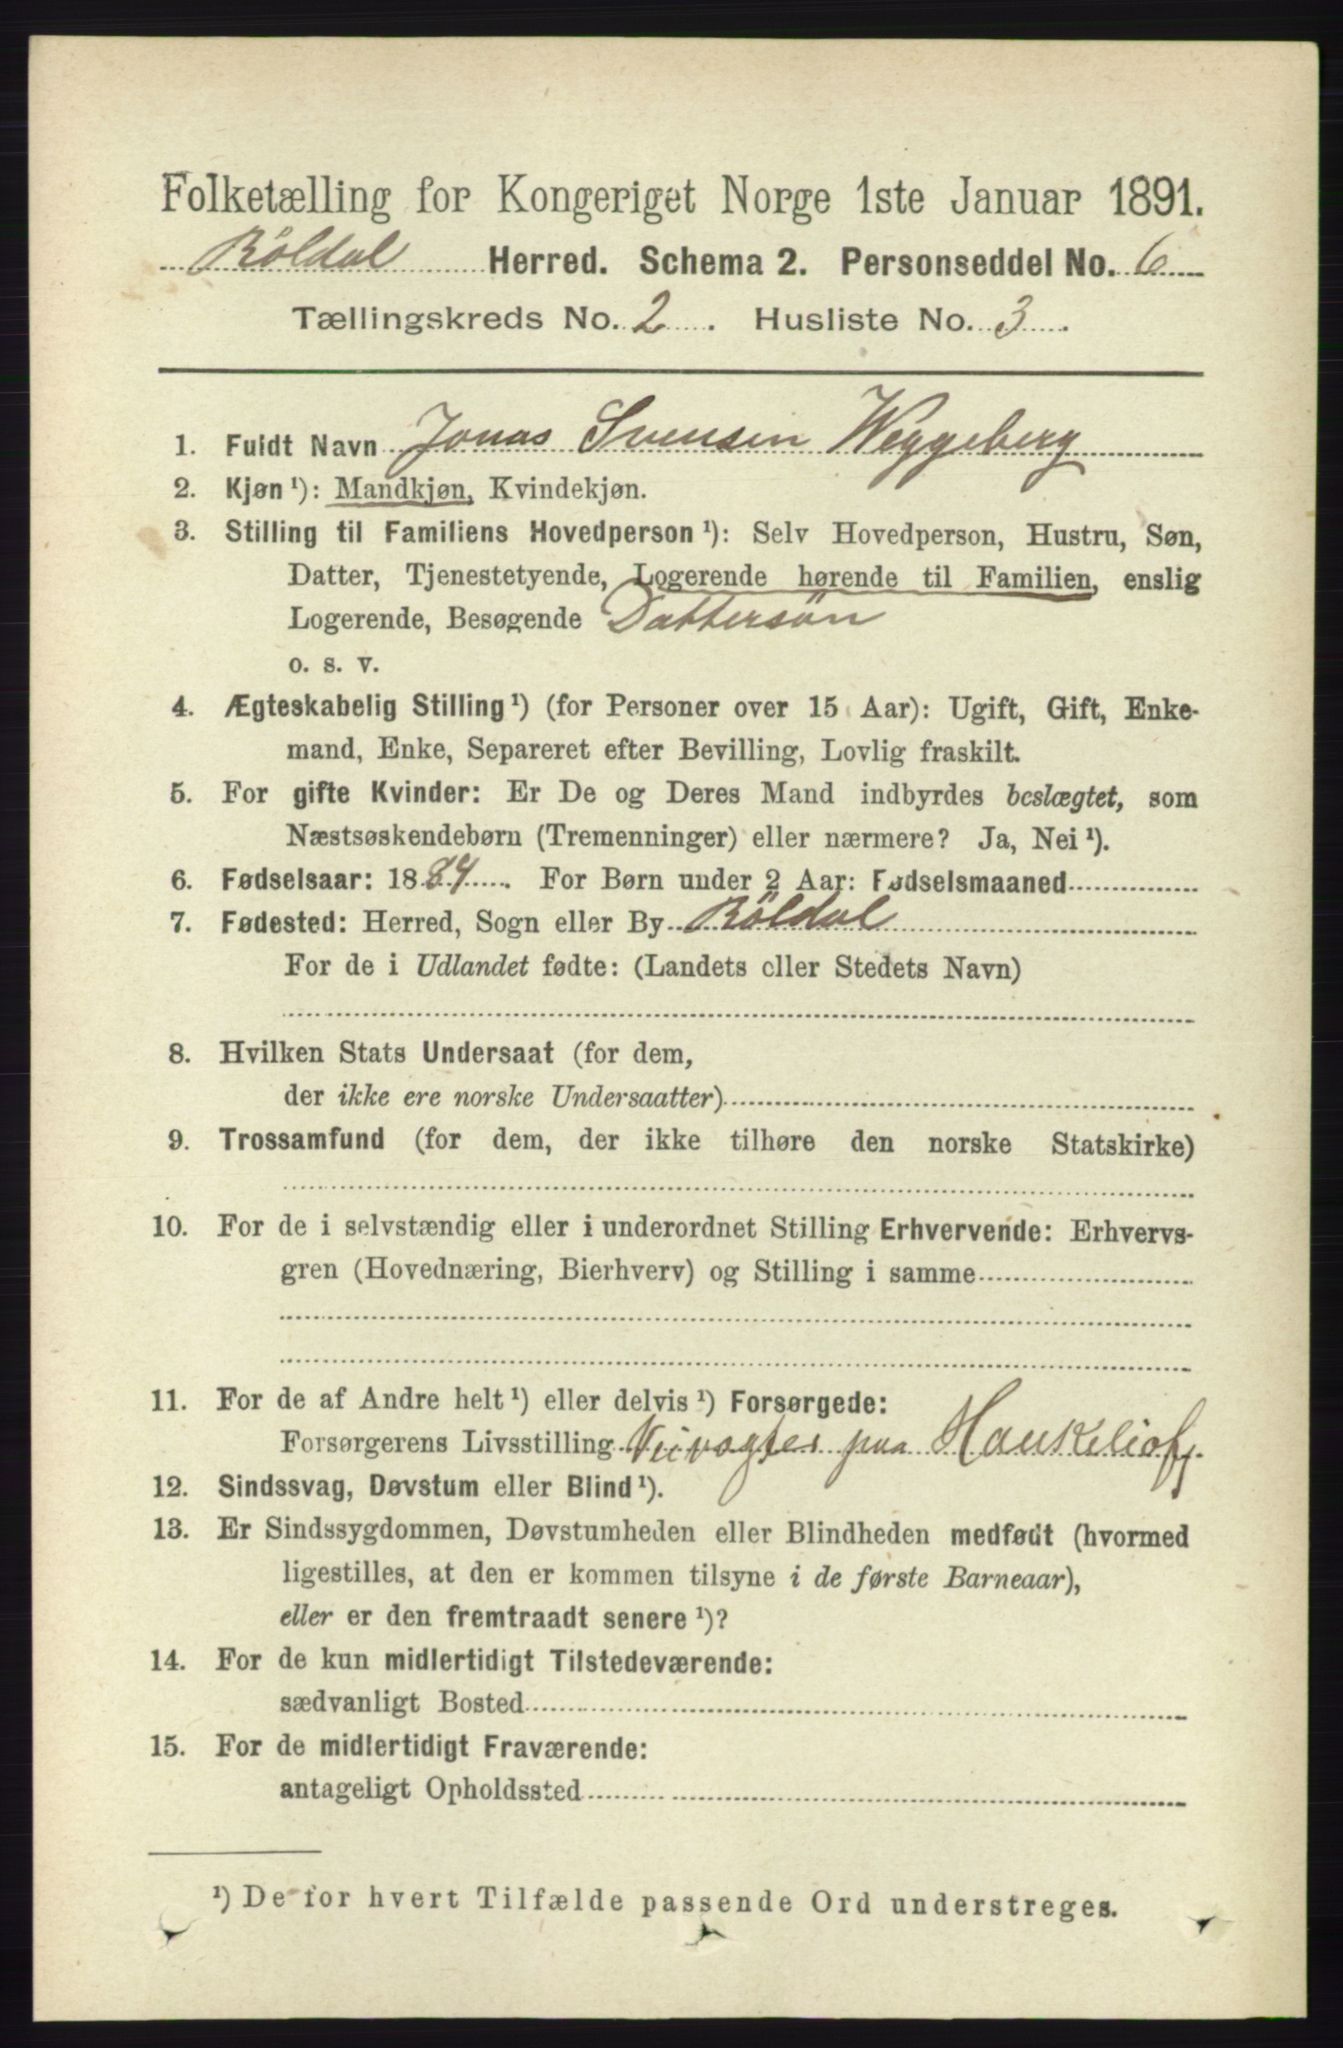 Folketælling for Kongeriget Norge 1ste Januar 1891.
Röldal Herred. Schema 2. Personseddel No. 6
Tællingskreds No. 2. Husliste No. 3.
1. Fuldt Navn Jonas Svensen Weggeberg
2. Kjøn ¹): Mandkjøn, Kvindekjøn.
3. Stilling til Familiens Hovedperson ¹): Selv Hovedperson, Hustru, Søn,
Datter, Tjenestetyende, Logerende hørende til Familien, enslig
Logerende, Besøgende Dattersön
o. s. v.
4. Ægteskabelig Stilling ¹) (for Personer over 15 Aar): Ugift, Gift, Enke-
mand, Enke, Separeret efter Bevilling, Lovlig fraskilt.
5. For gifte Kvinder: Er De og Deres Mand indbyrdes beslægtet, som
Næstsøskendebørn (Tremenninger) eller nærmere? Ja, Nei ¹).
6. Fødselsaar: 1884. For Børn under 2 Aar: Fødselsmaaned
7. Fødested: Herred, Sogn eller By Röldal
For de i Udlandet fødte: (Landets eller Stedets Navn)
8. Hvilken Stats Undersaat (for dem,
der ikke ere norske Undersaatter)
9. Trossamfund (for dem, der ikke tilhøre den norske Statskirke)
10. For de i selvstændig eller i underordnet Stilling Erhvervende: Erhvervs-
gren (Hovednæring, Bierhverv) og Stilling i samme
11. For de af Andre helt ¹) eller delvis ¹) Forsørgede:
Forsørgerens Livsstilling Veivogter paa Haukeliofj.
12. Sindssvag, Døvstum eller Blind ¹).
13. Er Sindssygdommen, Døvstumheden eller Blindheden medfødt (hvormed
ligestilles, at den er kommen tilsyne i de første Barneaar),
eller er den fremtraadt senere ¹)?
14. For de kun midlertidigt Tilstedeværende:
sædvanligt Bosted
15. For de midlertidigt Fraværende:
antageligt Opholdssted
¹) De for hvert Tilfælde passende Ord understreges.